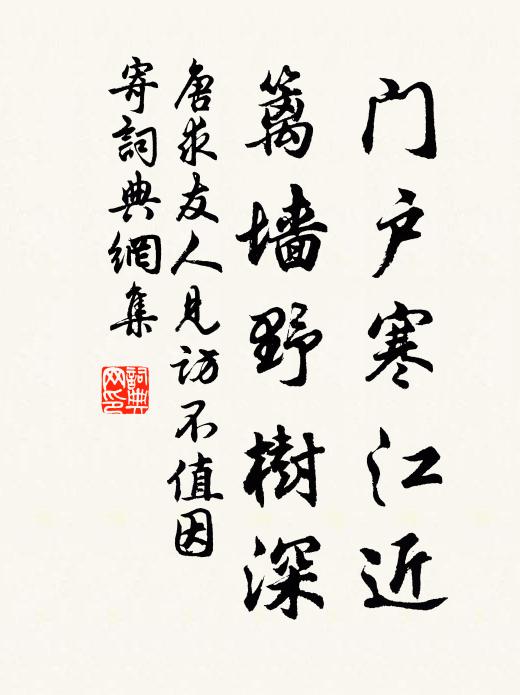 门户寒江近
篱墙野樹深
唐求友人見访不值因
寄詞典網集
詞典
网印